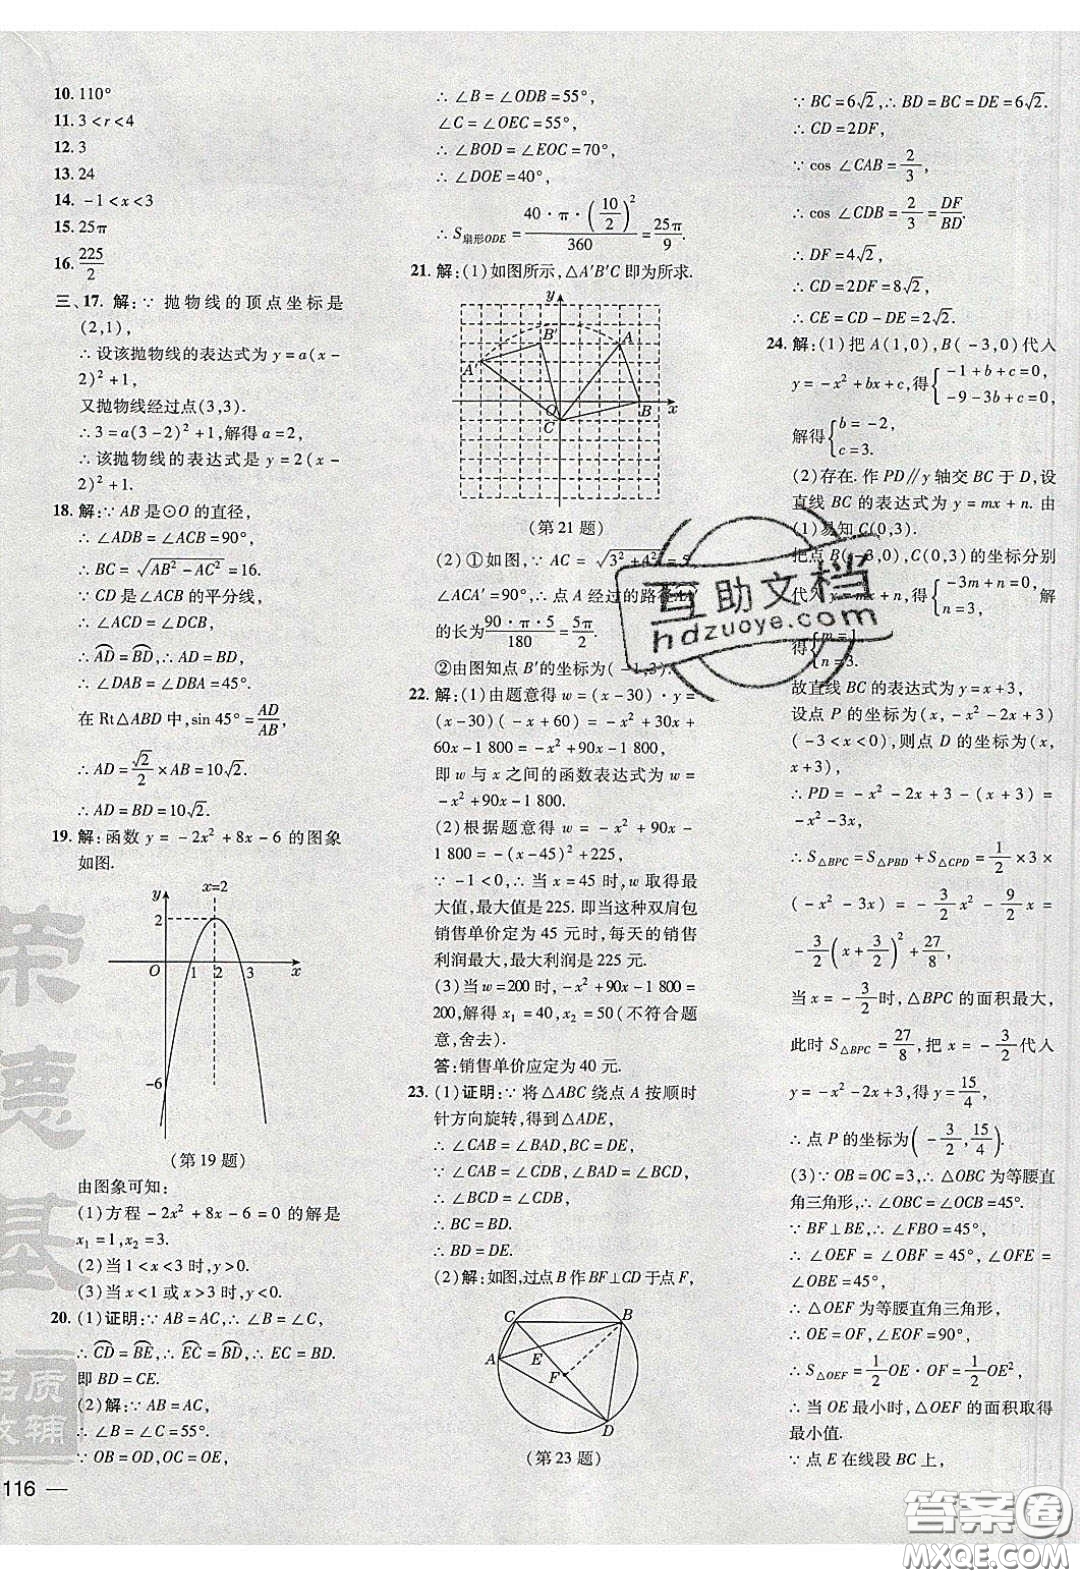 10. 110°
11. 3<r<4
12. 3
13. 24
14. -1<x<3
15. 25π
16. 225/2
三、17. 解:∵ 抛物线的顶点坐标是
(2,1),
∴ 设该抛物线的表达式为 y=a(x-
2)²+1,
又抛物线经过点(3,3).
∴ 3=a(3-2)²+1,解得 a=2,
∴ 该抛物线的表达式是 y=2(x-
2)²+1.
18. 解:∵ AB 是⊙O 的直径,
∴ ∠ADB=∠ACB=90°,
∴ BC=√(AB²-AC²)=16.
∵ CD 是∠ACB 的平分线,
∴ ∠ACD=∠DCB,
∴ ⌒AD=⌒BD,∴ AD=BD,
∴ ∠DAB=∠DBA=45°.
在 Rt△ABD 中,sin 45°=AD/AB,
∴ AD=√2/2×AB=10√2.
∴ AD=BD=10√2.
19. 解:函数 y=-2x²+8x-6 的图象
如图.
y
x=2
2
O 1 2 3 x
-6
(第 19 题)
由图象可知:
(1)方程-2x²+8x-6=0 的解是
x₁=1,x₂=3.
(2)当 1<x<3 时,y>0.
(3)当 x<1 或 x>3 时,y<0.
20. (1)证明:∵ AB=AC,∴ ∠B=∠C,
∴ ⌒CD=⌒BE,∴ ⌒EC=⌒BD,∴ EC=BD,
即 BD=CE.
(2)解:∵ AB=AC,
∴ ∠B=∠C=55°.
∵ OB=OD,OC=OE,
116 —
∴ ∠B=∠ODB=55°,
∠C=∠OEC=55°,
∴ ∠BOD=∠EOC=70°,
∴ ∠DOE=40°,
∴ S扇形ODE=40·π·(10/2)²/360=25π/9.
21. 解:(1)如图所示,△A′B′C 即为所求.
y
B′ A
A′
O B x
C
(第 21 题)
(2)①如图,∵ AC=√(3²+4²)=5
∠ACA′=90°,∴ 点 A 经过的路径
的长为90·π·5/180=5π/2
②由图知点 B′的坐标为(-1,3).
22. 解:(1)由题意得 w=(x-30)·y=
(x-30)(-x+60)=-x²+30x+
60x-1 800=-x²+90x-1 800,
即 w 与 x 之间的函数表达式为 w=
-x²+90x-1 800.
(2)根据题意得 w=-x²+90x-
1 800=-(x-45)²+225,
∵ -1<0,∴ 当 x=45 时,w 取得最
大值,最大值是225. 即当这种双肩包
销售单价定为 45 元时,每天的销售
利润最大,最大利润是 225 元.
(3)当 w=200时,-x²+90x-1 800=
200,解得 x₁=40,x₂=50(不符合题
意,舍去).
答:销售单价应定为 40 元.
23. (1)证明:∵ 将△ABC 绕点 A 按顺时
针方向旋转,得到△ADE,
∴ ∠CAB=∠BAD,BC=DE,
∵ ∠CAB=∠CDB,∠BAD=∠BCD,
∴ ∠BCD=∠CDB,
∴ BC=BD.
∴ BD=DE.
(2)解:如图,过点 B 作 BF⊥CD 于点 F,
C B
A E
F
D
(第 23 题)
∵ BC=6√2,∴ BD=BC=DE=6√2.
∴ CD=2DF,
∵ cos ∠CAB=2/3,
∴ cos ∠CDB=2/3=DF/BD.
∴ DF=4√2,
∴ CD=2DF=8√2,
∴ CE=CD-DE=2√2.
24. 解:(1)把 A(1,0),B(-3,0)代入
y=-x²+bx+c,得{-1+b+c=0, -9-3b+c=0,
解得{b=-2, c=3.
(2)存在. 作 PD∥y 轴交 BC 于 D,设
直线 BC 的表达式为 y=mx+n. 由
(1)易知 C(0,3).
把点 B(-3,0),C(0,3)的坐标分别
代入 y=mx+n,得{-3m+n=0, n=3, 解
得{m=1 n=3.
故直线 BC 的表达式为 y=x+3,
设点 P 的坐标为(x,-x²-2x+3)
(-3<x<0),则点 D 的坐标为(x,
x+3),
∴ PD=-x²-2x+3-(x+3)=
-x²-3x,
∴ S△BPC=S△PBD+S△CPD=1/2×3×
(-x²-3x)=-3/2x²-9/2x=
-3/2(x+3/2)²+27/8,
当 x=-3/2时,△BPC 的面积最大,
此时 S△BPC=27/8,把 x=-3/2代入
y=-x²-2x+3,得 y=15/4,
∴ 点 P 的坐标为(-3/2,15/4).
(3)∵ OB=OC=3,∴ △OBC 为等腰直
角三角形,∴ ∠OBC=∠OCB=45°.
∵ BF⊥BE,∴ ∠FBO=45°,
∴ ∠OEF=∠OBF=45°,∠OFE=
∠OBE=45°.
∴ △OEF 为等腰直角三角形,
∴ OE=OF,∠EOF=90°.
∴ S△OEF=1/2OE·OF=1/2OE².
∴ 当 OE 最小时,△OEF 的面积取得
最小值.
∵ 点 E 在线段 BC 上,
荣德基
品质教辅
互助文档
hdzuoye.com
答案圈
MXQE.COM